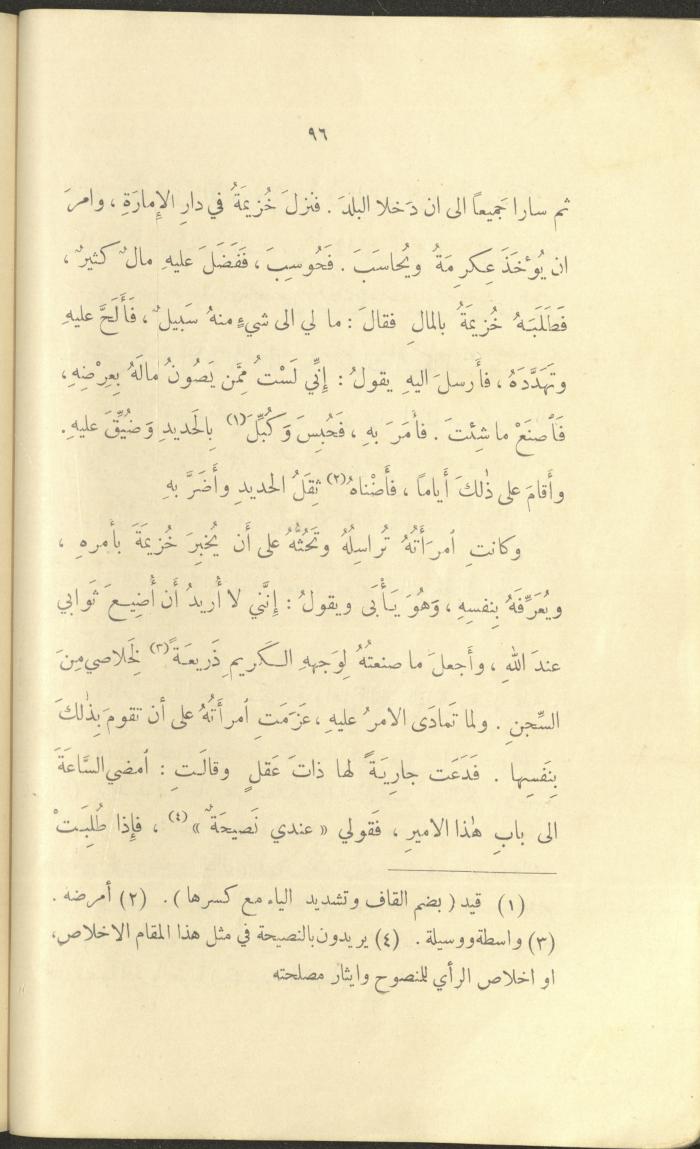 ٩٦
ثم سارا جَميعاً الى ان دَخلا البلدَ . فنزلَ خُزيمَةُ في دارِ الإِمارَةِ ، وامرَ
ان يُوْخَذَ عِكرِمَةُ ويُحاسَبَ . فَحُوسِبَ ، فَفَضَلَ عليهِ مالٌ كثيرٌ ،
فَطَلَبَهُ خُزيمَةُ بالمالِ فقالَ : ما لي الى شيءٍ منهُ سَبيلٌ ، فَأَلَحَّ عليهِ
وتَهَدَّدَهُ ، فأَرسلَ اليهِ يقولُ : إِنِّي لَسْتُ مِمَّن يَصُونُ مالَهُ بِعِرْضِهِ ،
فَٱصنَعْ ما شِئتَ . فأَمَرَ بهِ ، فَحُبِسَ وَكُبِّلَ (١) بِالحَديدِ وَضُيِّقَ عليهِ .
وأَقامَ على ذٰلكَ أَياماً ، فأَضْناهُ (٢) ثِقَلُ الحديدِ وأَضَرَّ بهِ
وكانتِ ٱمرَأَتُهُ تُراسِلُهُ وتَحُثُّهُ على أَن يُخبِرَ خُزيمَةَ بأَمرهِ ،
ويُعَرِّفَهُ بِنفسِهِ ، وَهُوَ يَأْبَى ويقولُ : إِنَّني لا أُريدُ أَن أُضِيعَ ثَوابي
عندَ اللهِ ، وأَجعلَ ما صنعتُهُ لِوَجههِ الـكَريمِ ذَريعَةً (٣) لِخَلاصي مِنَ
السِّجنِ . ولما تَمادَى الامرُ عليهِ ، عَزَمَتِ ٱمرأَتُهُ على أَن تقومَ بِذٰلكَ
بِنَفسِها . فَدَعَت جارِيَةً لها ذاتَ عَقلٍ وقالَتِ : ٱمضي السَّاعَةَ
الى بابِ هٰذا الاميرِ ، فَقولي « عندي نَصيحَةٌ » (٤) ، فإِذا طُلِبَتْ
(١) قيد ( بضم القاف وتشديد الياء مع كسرها ) . (٢) أمرضه .
(٣) واسطة ووسيلة . (٤) يريدون بالنصيحة في مثل هذا المقام الاخلاص ،
او اخلاص الرأي للمنصوح وايثار مصلحته